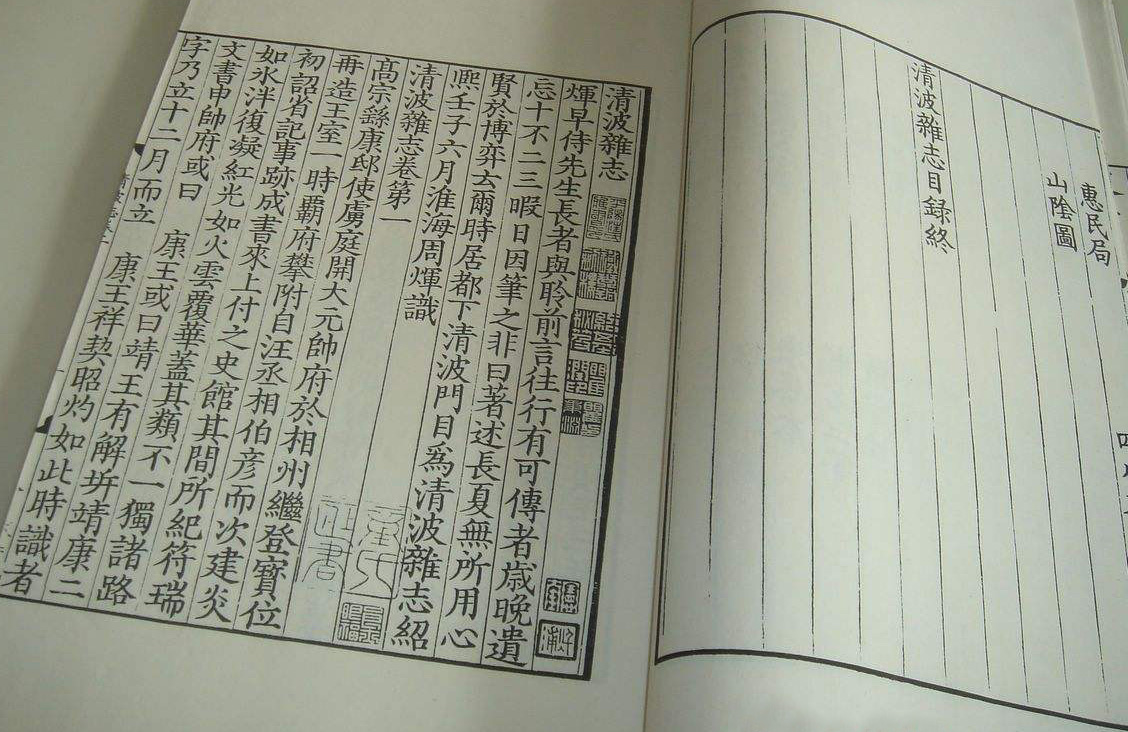 惠民局
山陰圖
清波雜志目録終
清波雜志
煇早侍先生長者與聆前言往行有可傳者歲晚遺
忘十不二三暇日因筆之非曰著述長夏無所用心
賢於博弈云爾時居都下清波門目爲清波雜志紹
熈壬子六月淮海周煇識
清波雜志卷第一
高宗繇康邸使虜庭開大元帥府於相州繼登寶位
再造王室一時霸府攀附自汪丞相伯彦而次建炎
初詔省記事跡成書來上付之史館其間所紀符瑞
如氷泮復凝紅光如火雲覆華蓋其類不一獨諸路
文書申帥府或曰　康王或曰靖王有解坼靖康二
字乃立十二月而立　康王祥契昭灼如此時識者